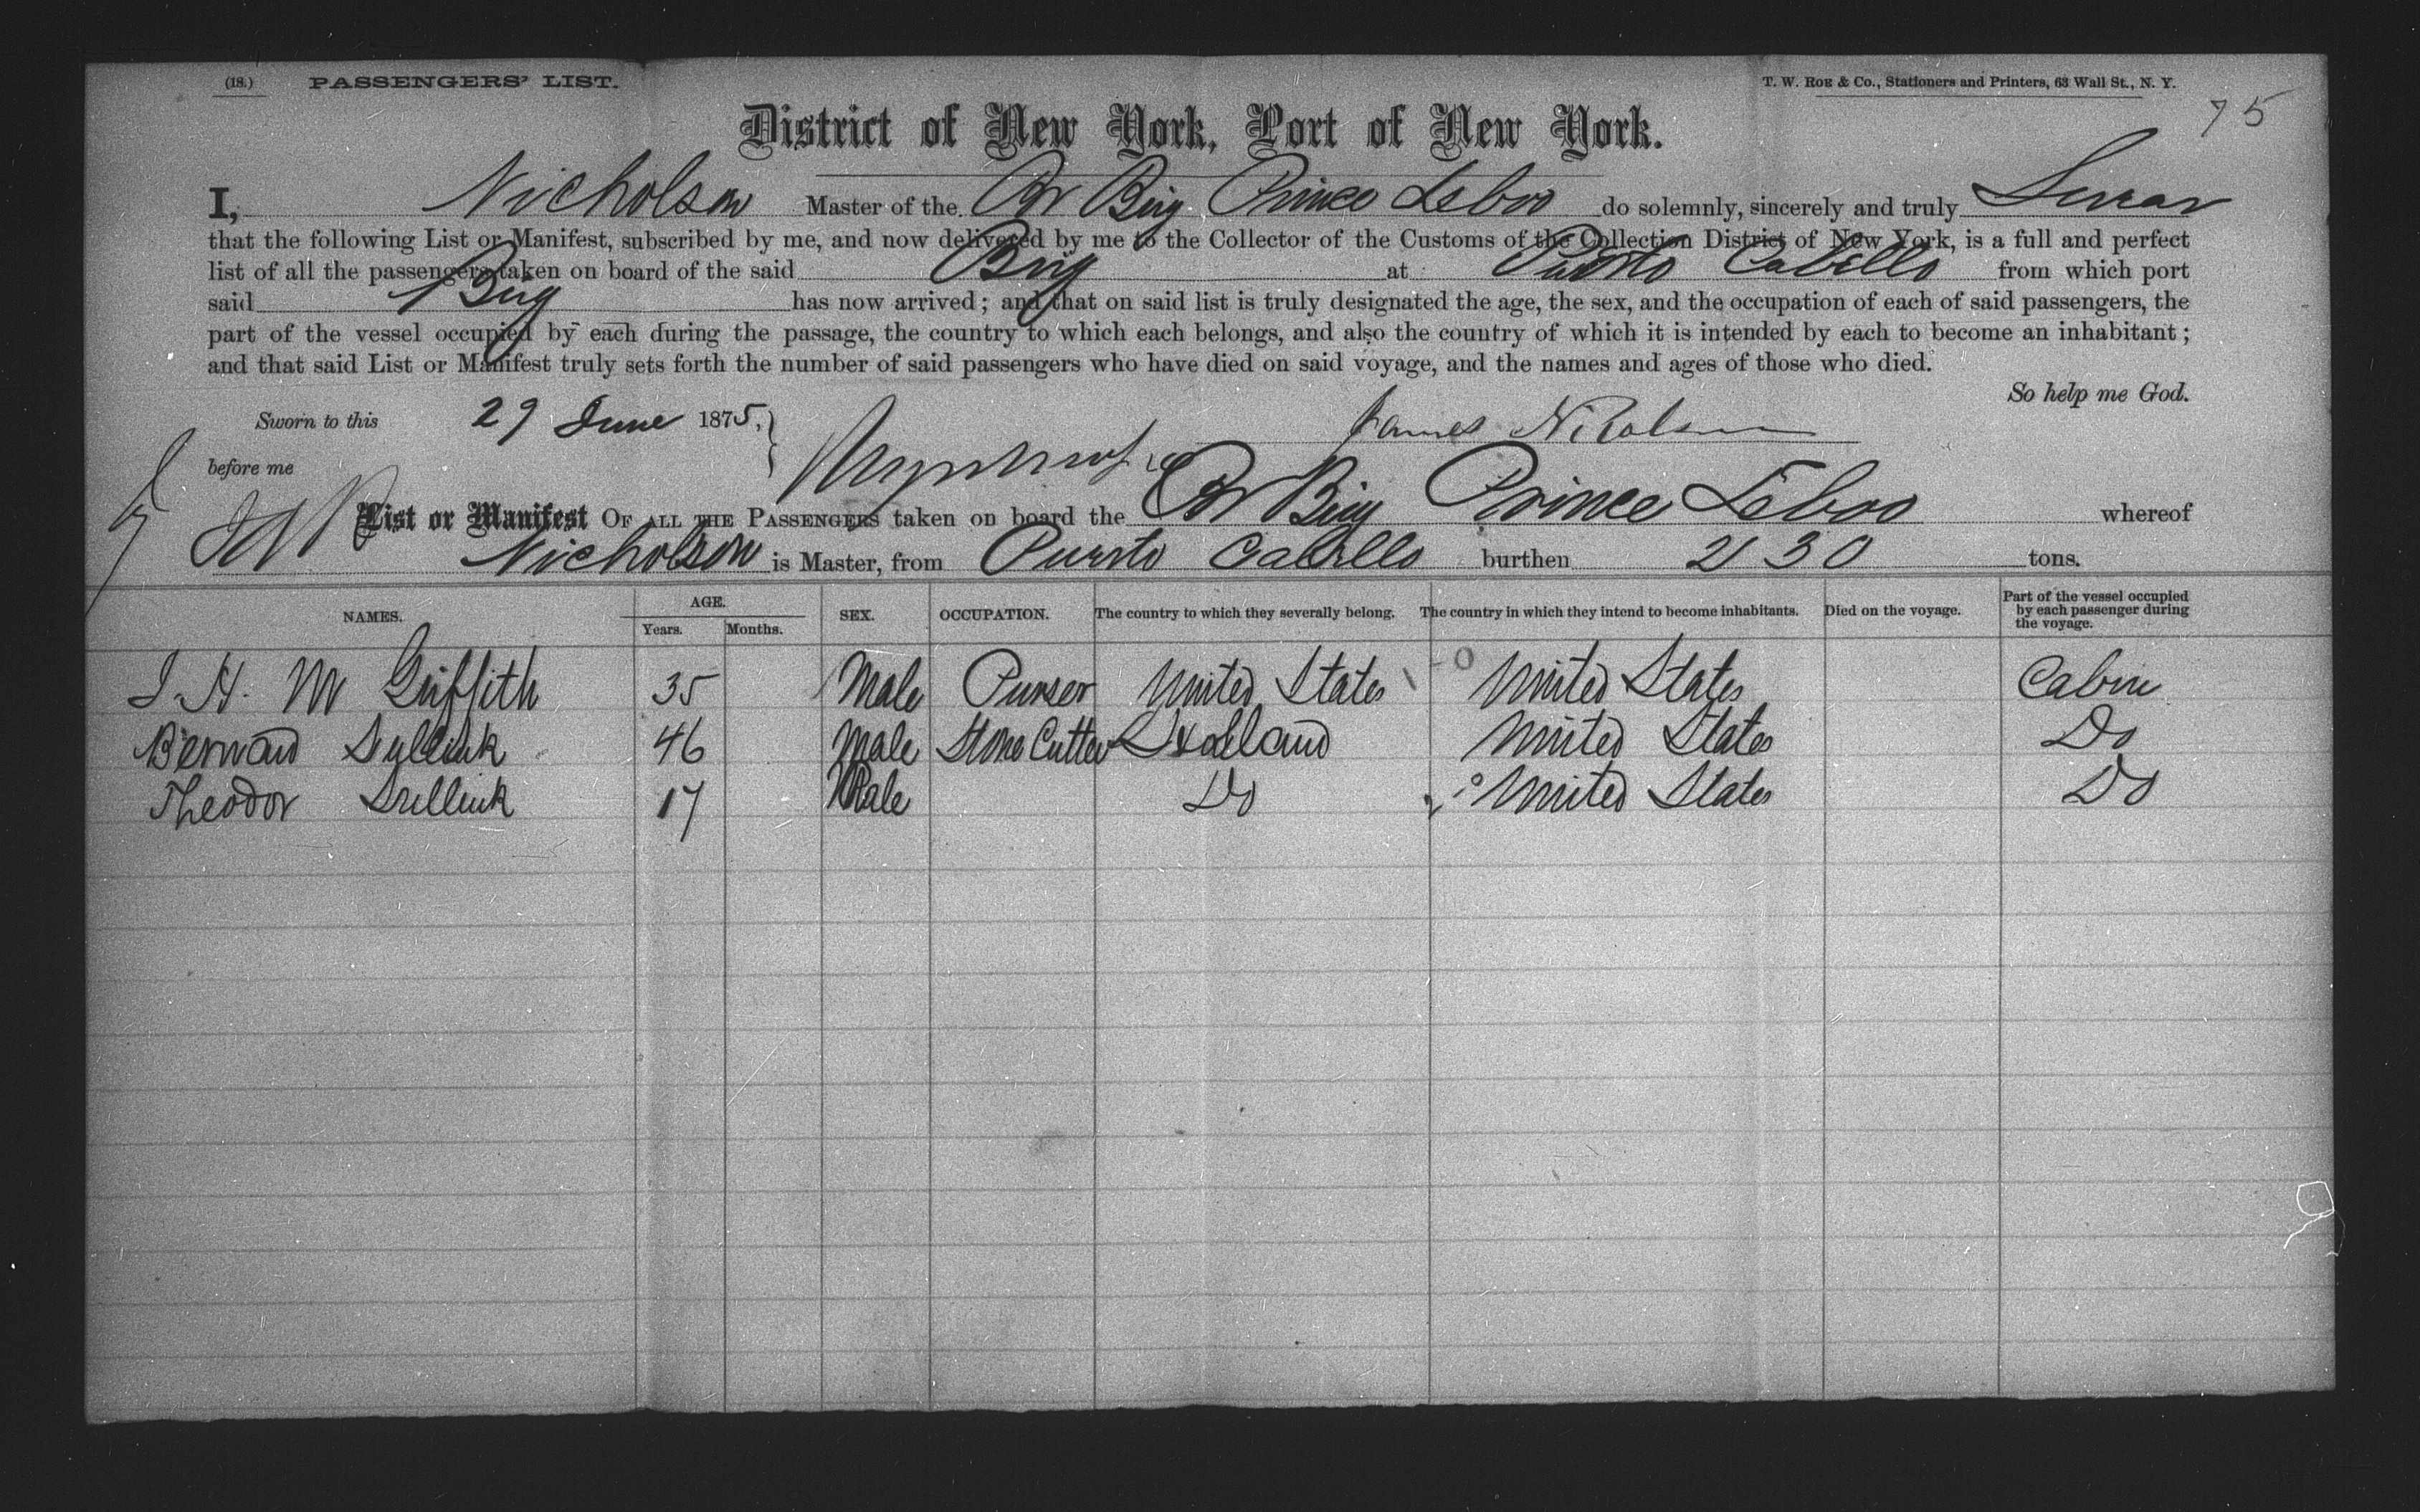 (18.) PASSENGERS' LIST.
T. W. ROE & Co., Stationers and Printers, 63 Wall St., N. Y.
75
District of New York, Port of New York.
I, Nicholson Master of the Br Brig Prince Leboo do solemnly, sincerely and truly Swear
that the following List or Manifest, subscribed by me, and now delivered by me to the Collector of the Customs of the Collection District of New York, is a full and perfect
list of all the passengers taken on board of the said Brig at Puerto Cabello from which port
said Brig has now arrived; and that on said list is truly designated the age, the sex, and the occupation of each of said passengers, the
part of the vessel occupied by each during the passage, the country to which each belongs, and also the country of which it is intended by each to become an inhabitant;
and that said List or Manifest truly sets forth the number of said passengers who have died on said voyage, and the names and ages of those who died.
So help me God.
Sworn to this 29 June 1875, James Nicholson
before me
List or Manifest OF ALL THE PASSENGERS taken on board the Br Brig Prince Leboo whereof
Nicholson is Master, from Puerto Cabello burthen 230 tons.
NAMES. AGE. Years. Months. SEX. OCCUPATION. The country to which they severally belong. The country in which they intend to become inhabitants. Died on the voyage. Part of the vessel occupied by each passenger during the voyage.
J. H. M Griffith 35 Male Purser United States United States Cabin
Bernard 46 Male Stone Cutter Holland United States Do
Theodor 17 Male Do United States Do